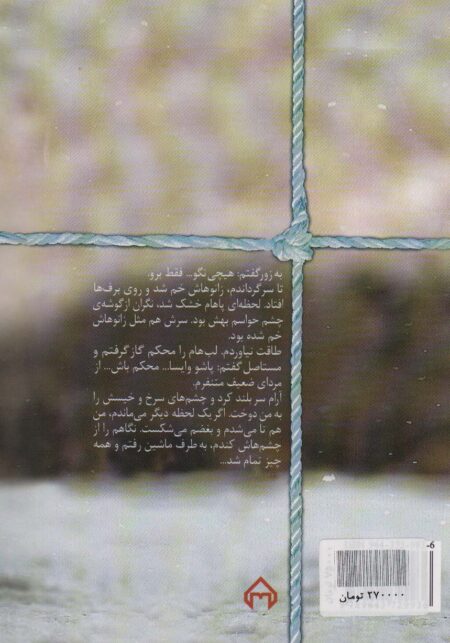 به زور گفتم: هیچی نگو... فقط برو.
تا سر گرداندم، زانوهاش خم شد و روی برف‌ها
افتاد. لحظه‌ای پاهام خشک شد، نگران از گوشه‌ی
چشم حواسم بهش بود. سرش هم مثل زانوهاش
خم شده بود.
طاقت نیاوردم. لب‌هام را محکم گاز گرفتم و
مستاصل گفتم: پاشو وایسا... محکم باش... از
مردای ضعیف متنفرم.
آرام سر بلند کرد و چشم‌های سرخ و خیسش را
به من دوخت. اگر یک لحظه دیگر می‌ماندم، من
هم تا می‌شدم و بغضم می‌شکست. نگاهم را از
چشم‌هاش کندم، به طرف ماشین رفتم و همه
چیز تمام شد...
-6
۲۷۰۰۰۰ تومان